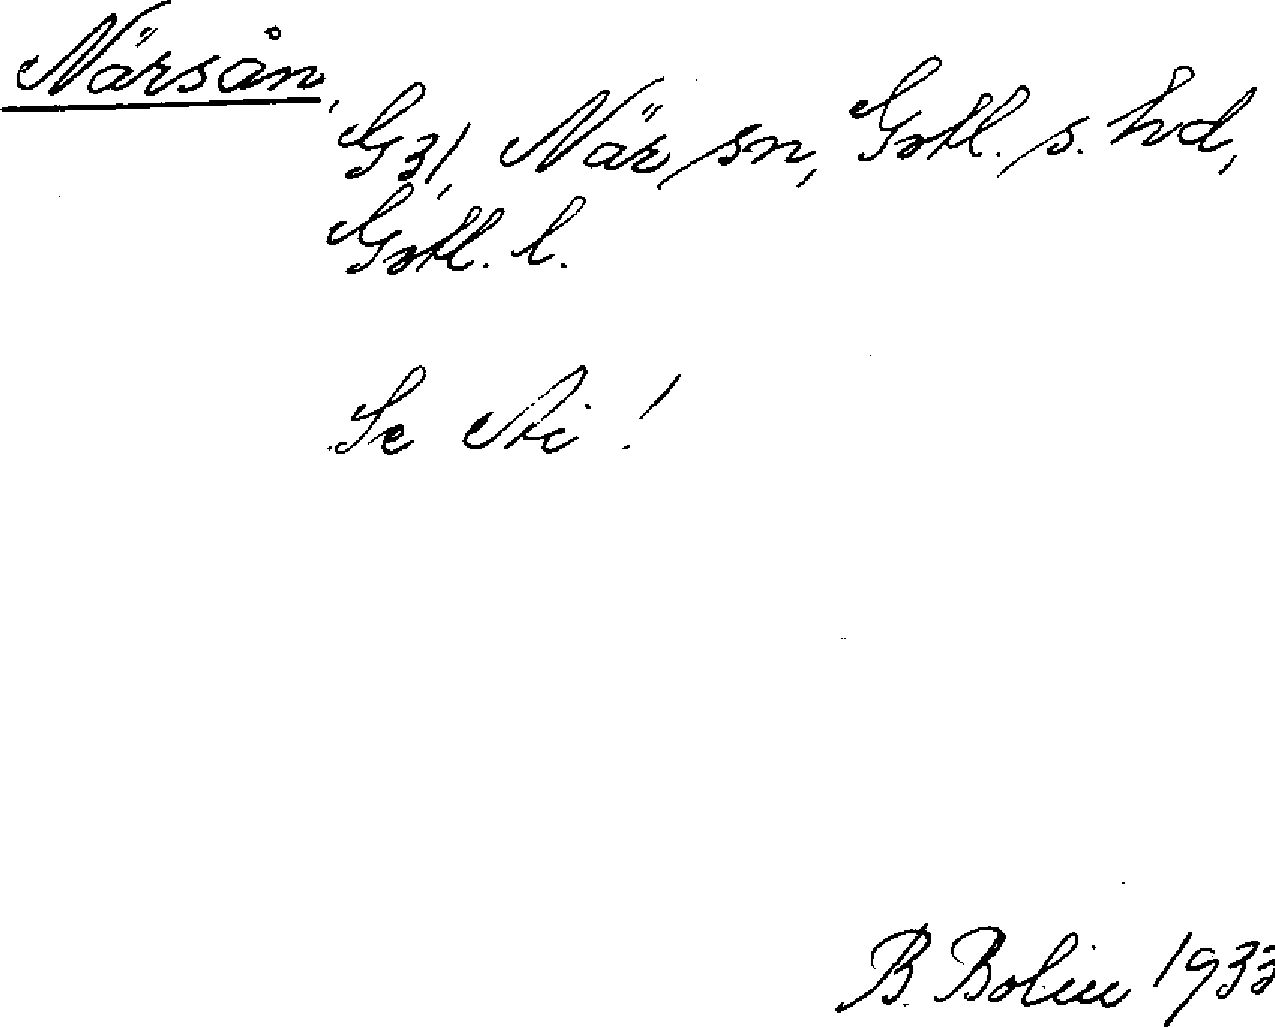 Närsån,
G31, När sn, Gotl. s. hd,
Gotl. l.
Se Ai!
B. Bolin 1933